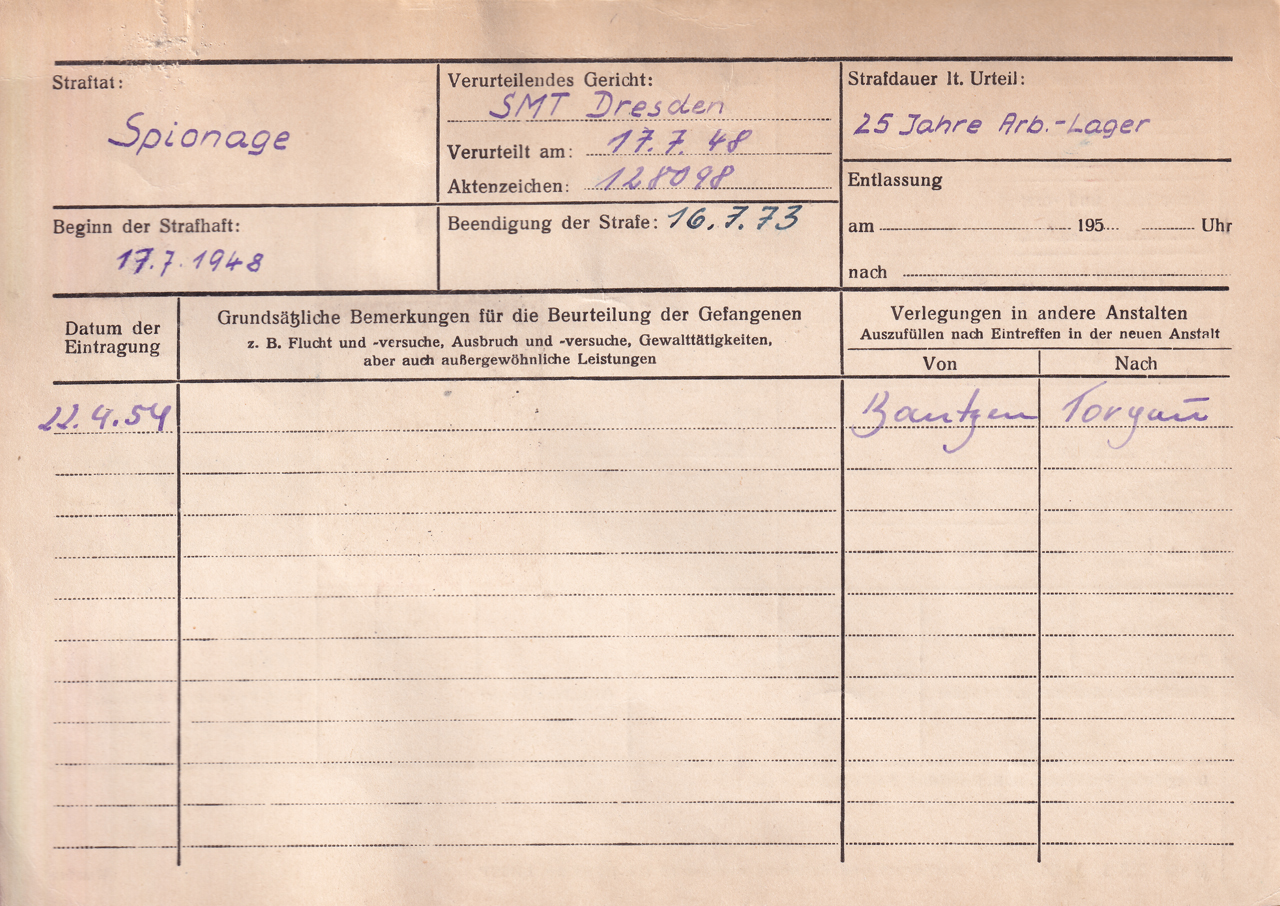 Straftat:
Spionage
Verurteilendes Gericht:
SMT Dresden
Verurteilt am: 17.7.48
Aktenzeichen: 128098
Strafdauer lt. Urteil:
25 Jahre Arb.-Lager
Entlassung
am 195 Uhr
nach
Beginn der Strafhaft:
17.7.1948
Beendigung der Strafe: 16.7.73
Datum der
Eintragung
Grundsätzliche Bemerkungen für die Beurteilung der Gefangenen
z. B. Flucht und -versuche, Ausbruch und -versuche, Gewalttätigkeiten,
aber auch außergewöhnliche Leistungen
Verlegungen in andere Anstalten
Auszufüllen nach Eintreffen in der neuen Anstalt
Von Nach
22.4.54 Bautzen Torgau